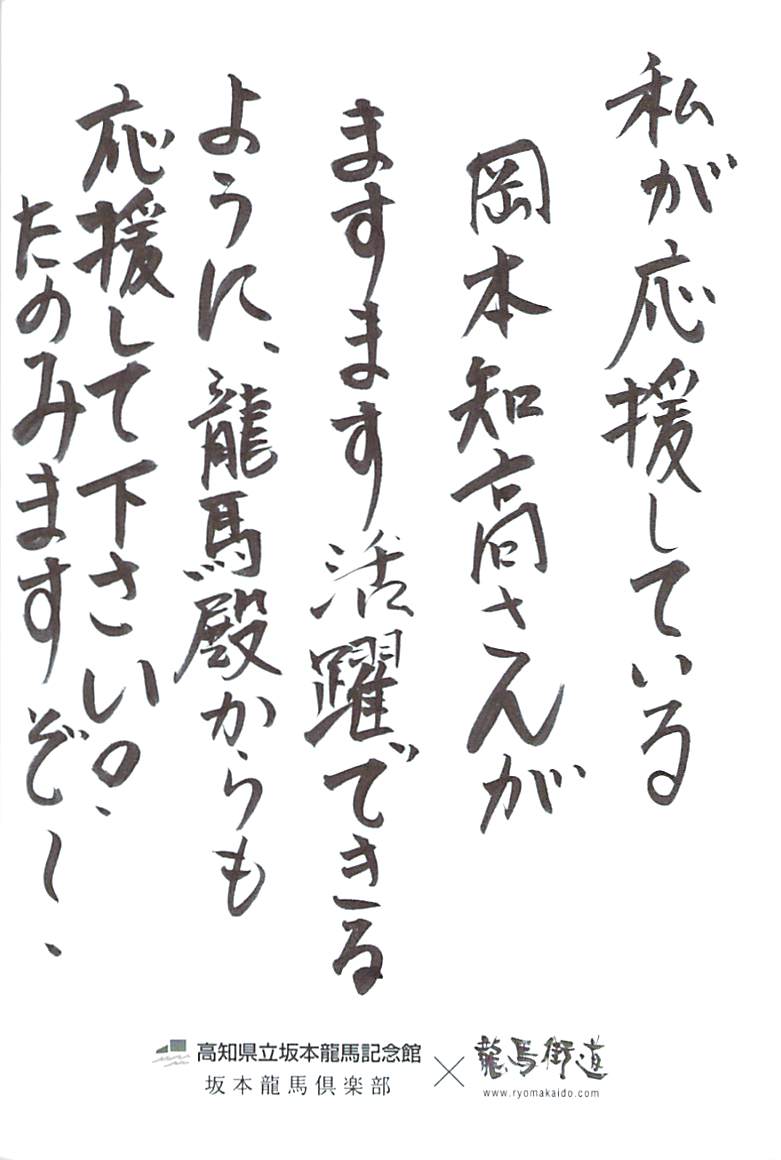 私が応援している
岡本知高さんが
ますます活躍できる
ように、龍馬殿からも
応援して下さいの、
たのみますぞー、
高知県立坂本龍馬記念館
坂本龍馬倶楽部
×
龍馬街道
www.ryomakaido.com